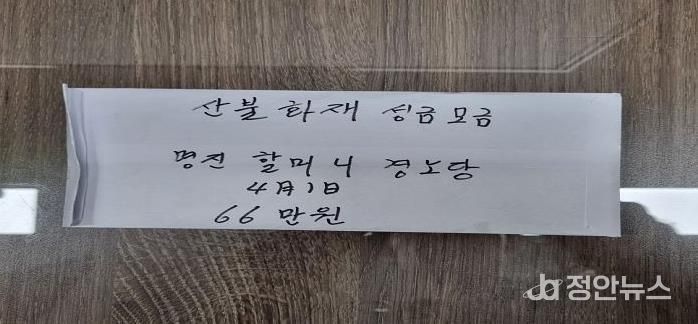 산불화재 성금모금
명진 할머니 경노당
4月1日
66만원
정안뉴스